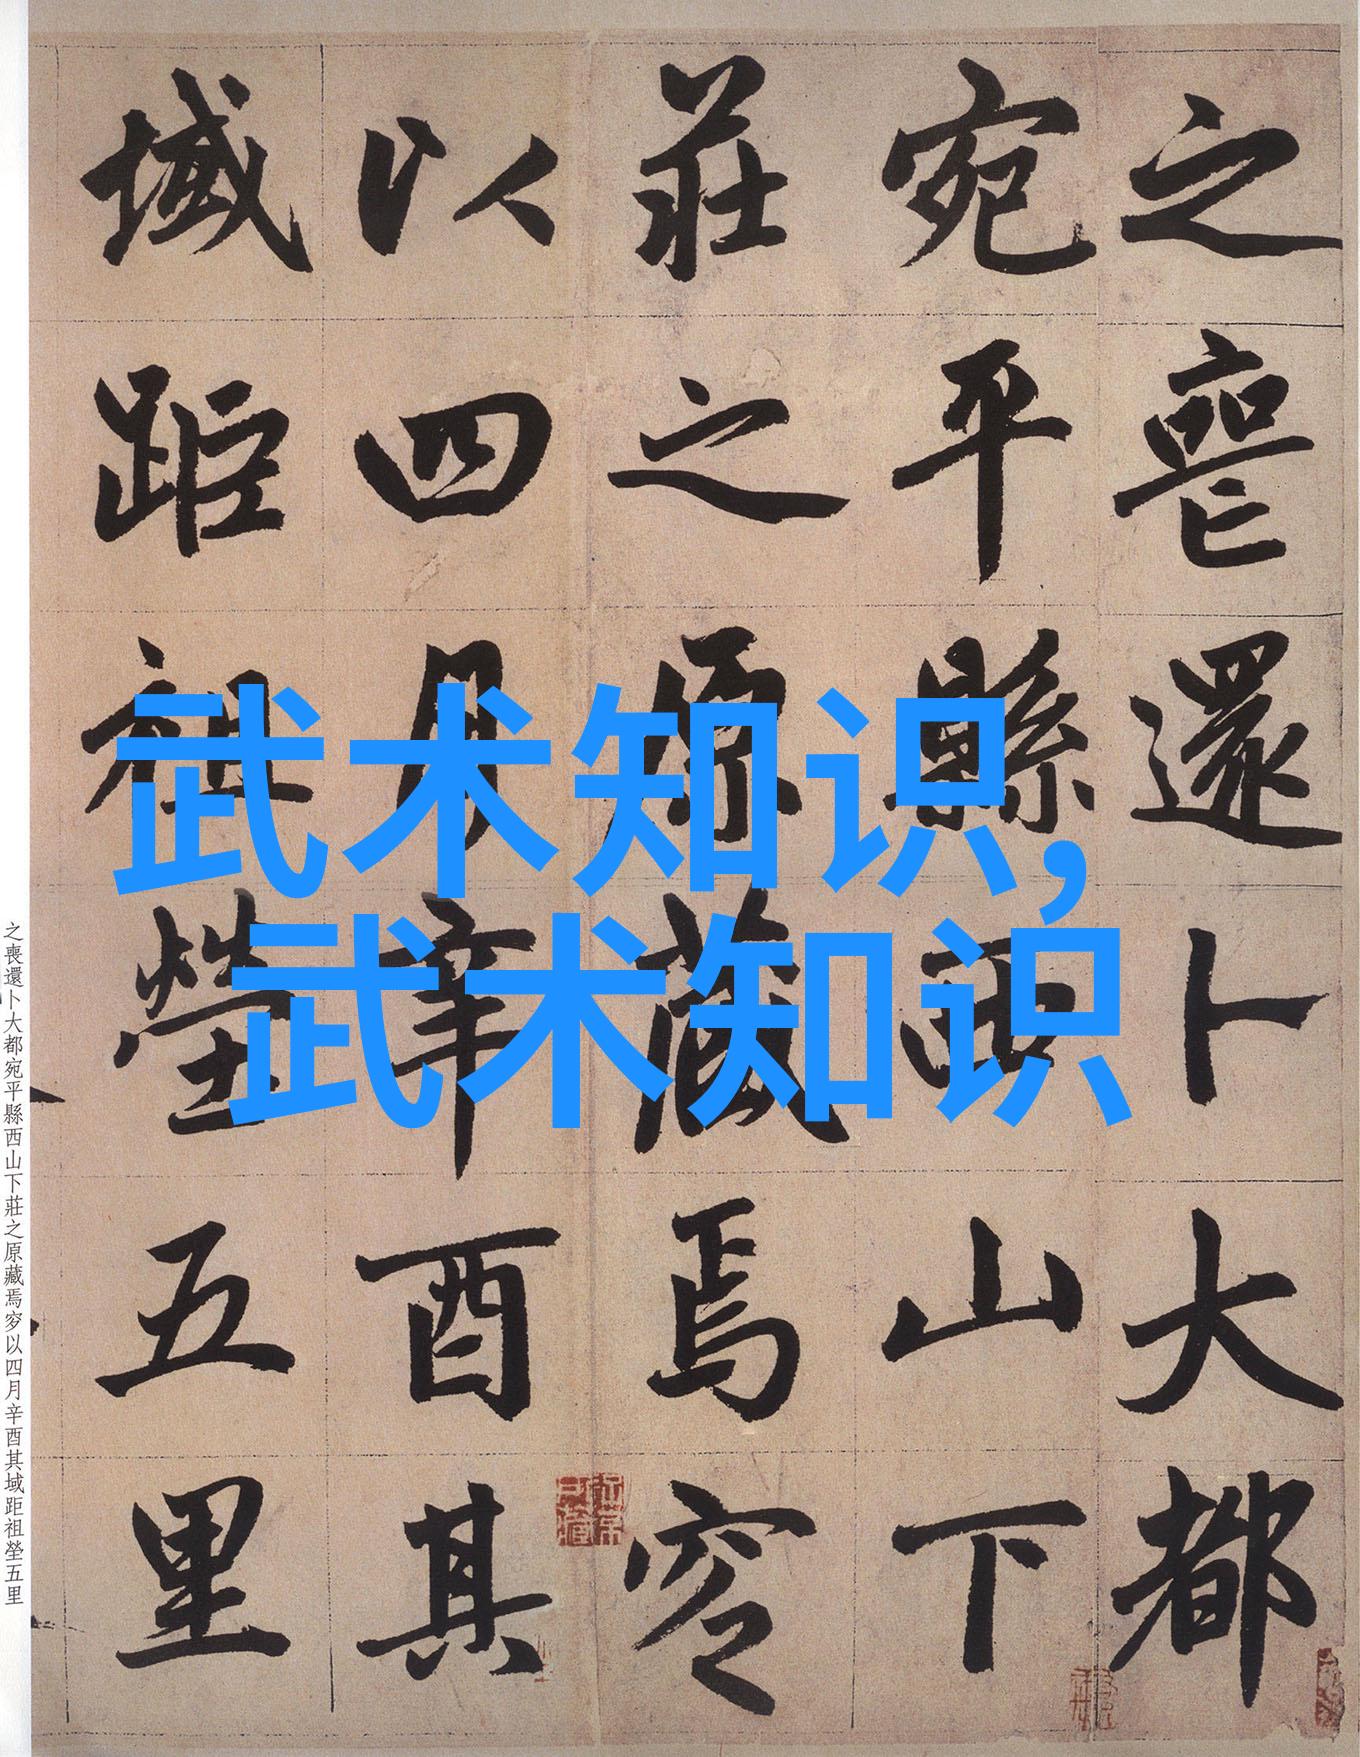 之喪還卜大都
宛平縣西山下
莊之原藏焉窆
以四月辛酉其
域距祖塋五里
武术知识,
武术知识
之喪還卜大都宛平縣西山下莊之原藏焉窆以四月辛酉其域距祖塋五里